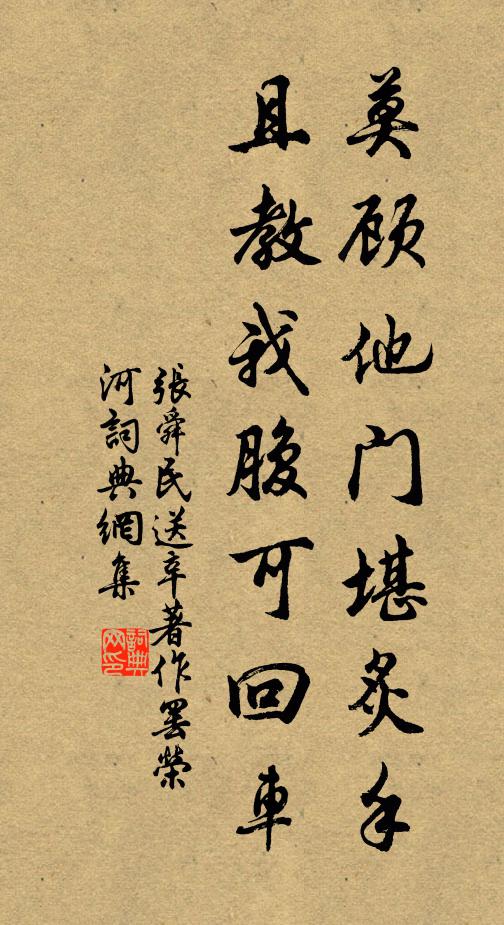 莫顾他门堪炙手
且教我腹可回車
張舜民送辛著作罢榮
河詞典網集
詞典网印